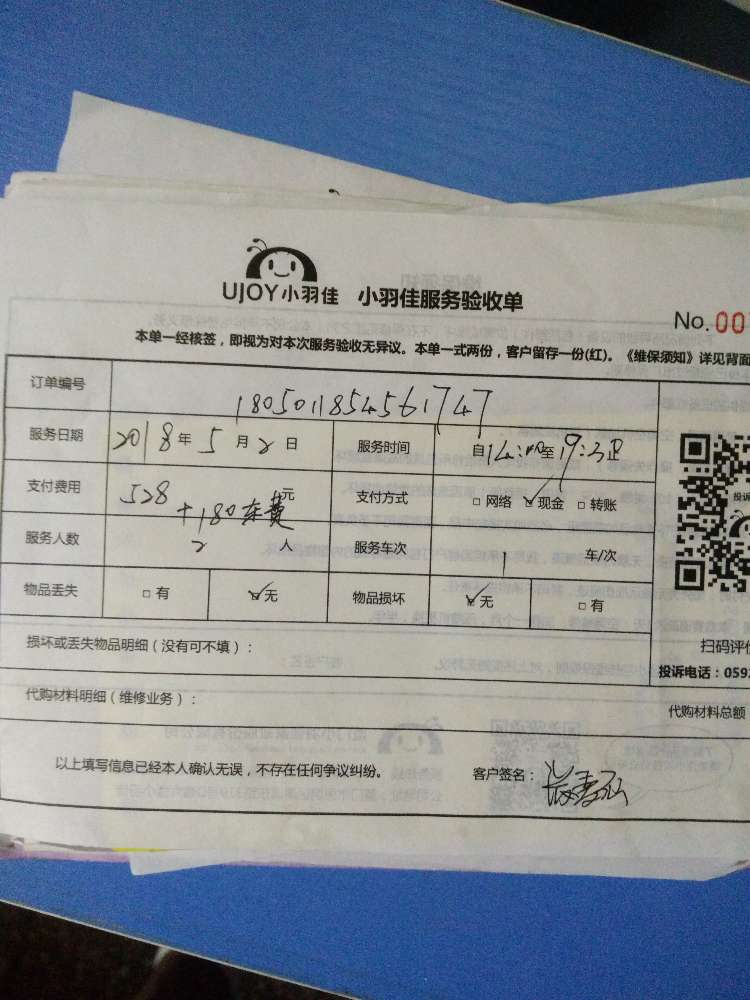 UJOY小羽佳 小羽佳服务验收单
No.00
本单一经核签，即视为对本次服务验收无异议。本单一式两份，客户留存一份(红)。《维保须知》详见背面
订单编号 1805011854561747
服务日期 2018年5月2日 服务时间 自14:00至19:
支付费用 528元 +180车费 支付方式 □网络 ☑现金 □转账
服务人数 2人 服务车次 1 车/次
物品丢失 □有 ☑无 物品损坏 ☑无 □有
损坏或丢失物品明细（没有可不填）：
扫码评价
投诉电话：0592
代购材料明细（维修业务）：
代购材料总额
以上填写信息已经本人确认无误，不存在任何争议纠纷。 客户签名：
投诉